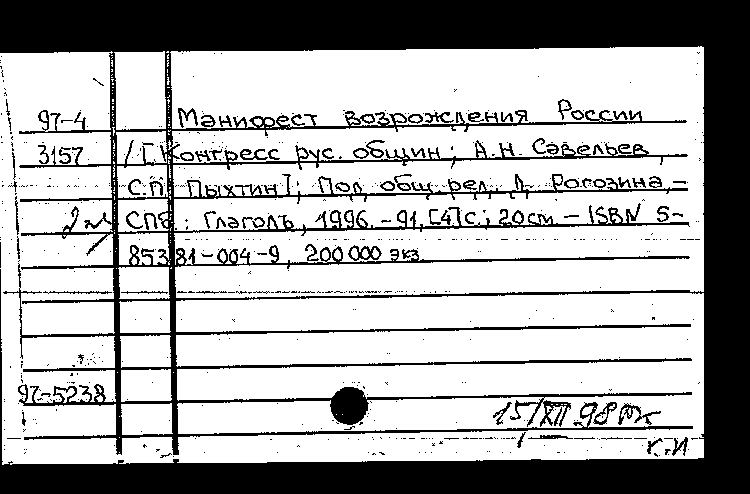 97-4 Манифест возрождения России
3157 / [Конгресс рус. общин; А.Н. Савельев,
С.П. Пыхтин]; Под общ. ред. Д. Рогозина, –
СПб.: Глаголъ, 1996. – 91, [4] с.; 20 см – ISBN 5-
85381-004-9, 200 000 экз.
97-5238
15/XII 98
К.И